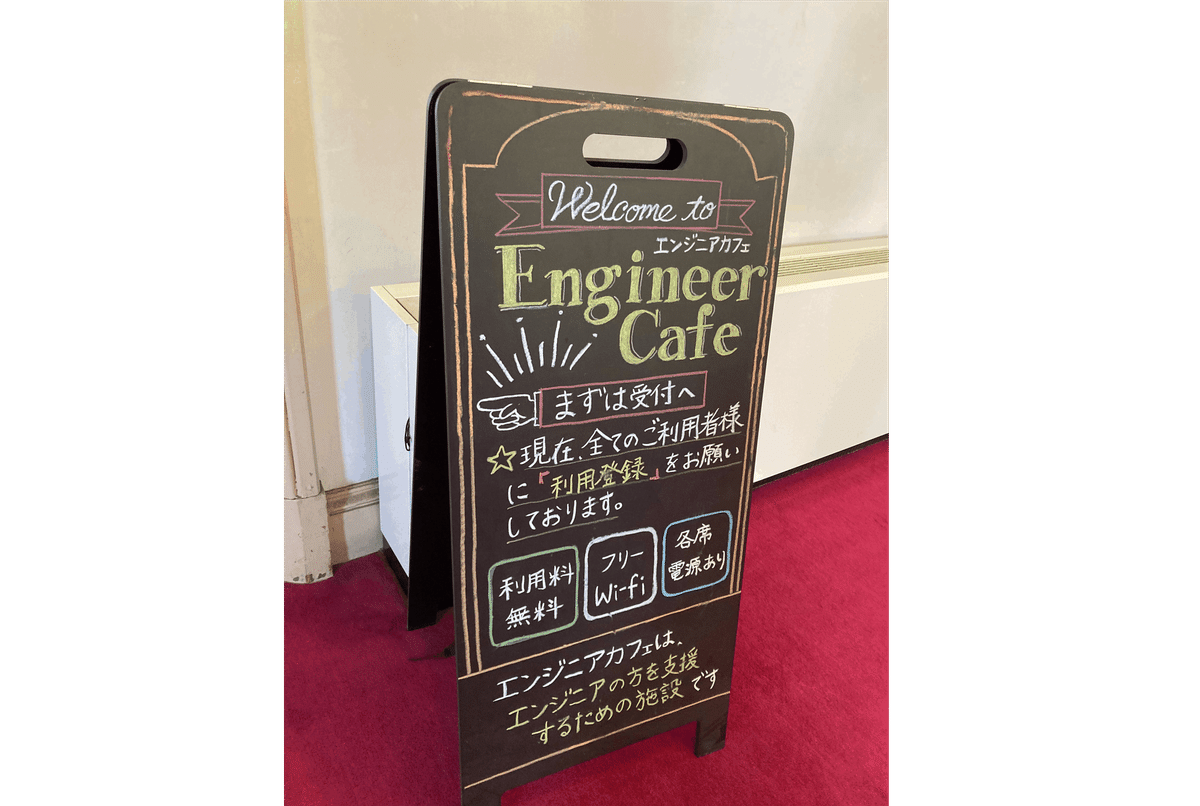 Welcome to
エンジニアカフェ
Engineer
Cafe
まずは受付へ
☆現在、全てのご利用者様
に『利用登録』をお願い
しております。
利用料
無料
フリー
Wi-fi
各席
電源あり
エンジニアカフェは、
エンジニアの方を支援
するための施設です